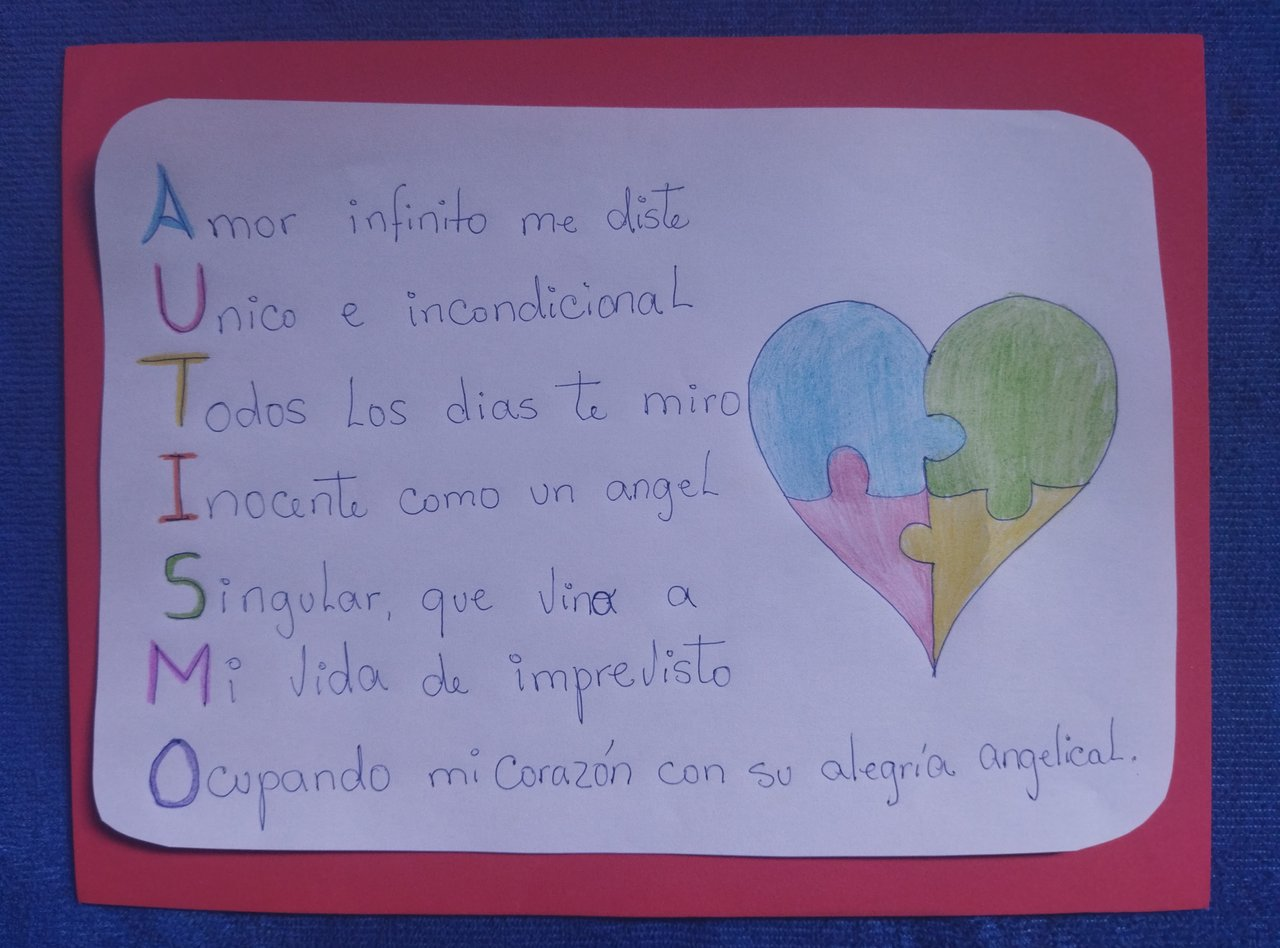 Amor infinito me diste
Unico e incondicional
Todos los dias te miro
Inocente como un angel
Singular, que vino a
Mi vida de imprevisto
Ocupando mi corazón con su alegría angelical.